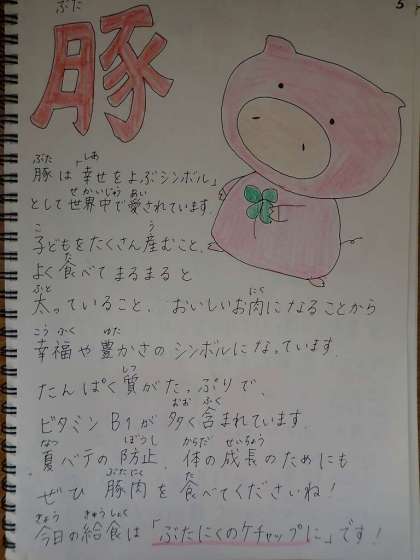 5
ぶた
豚
ぶた しあ
豚は「幸せをよぶシンボル」
せかいじゅう あい
として世界中で愛されています。
こ う
子どもをたくさん産むこと、
た
よく食べてまるまると
ふと にく
太っていること、おいしいお肉になることから
こうふく ゆた
幸福や豊かさのシンボルになっています。
しつ
たんぱく質がたっぷりで、
おお ふく
ビタミンB1が多く含まれています。
なつ ぼうし からだ せいちょう
夏バテの防止、体の成長のためにも
ぶたにく た
ぜひ豚肉を食べてくださいね!
きょう きゅうしょく
今日の給食は「ぶたにくのケチャップに」です!